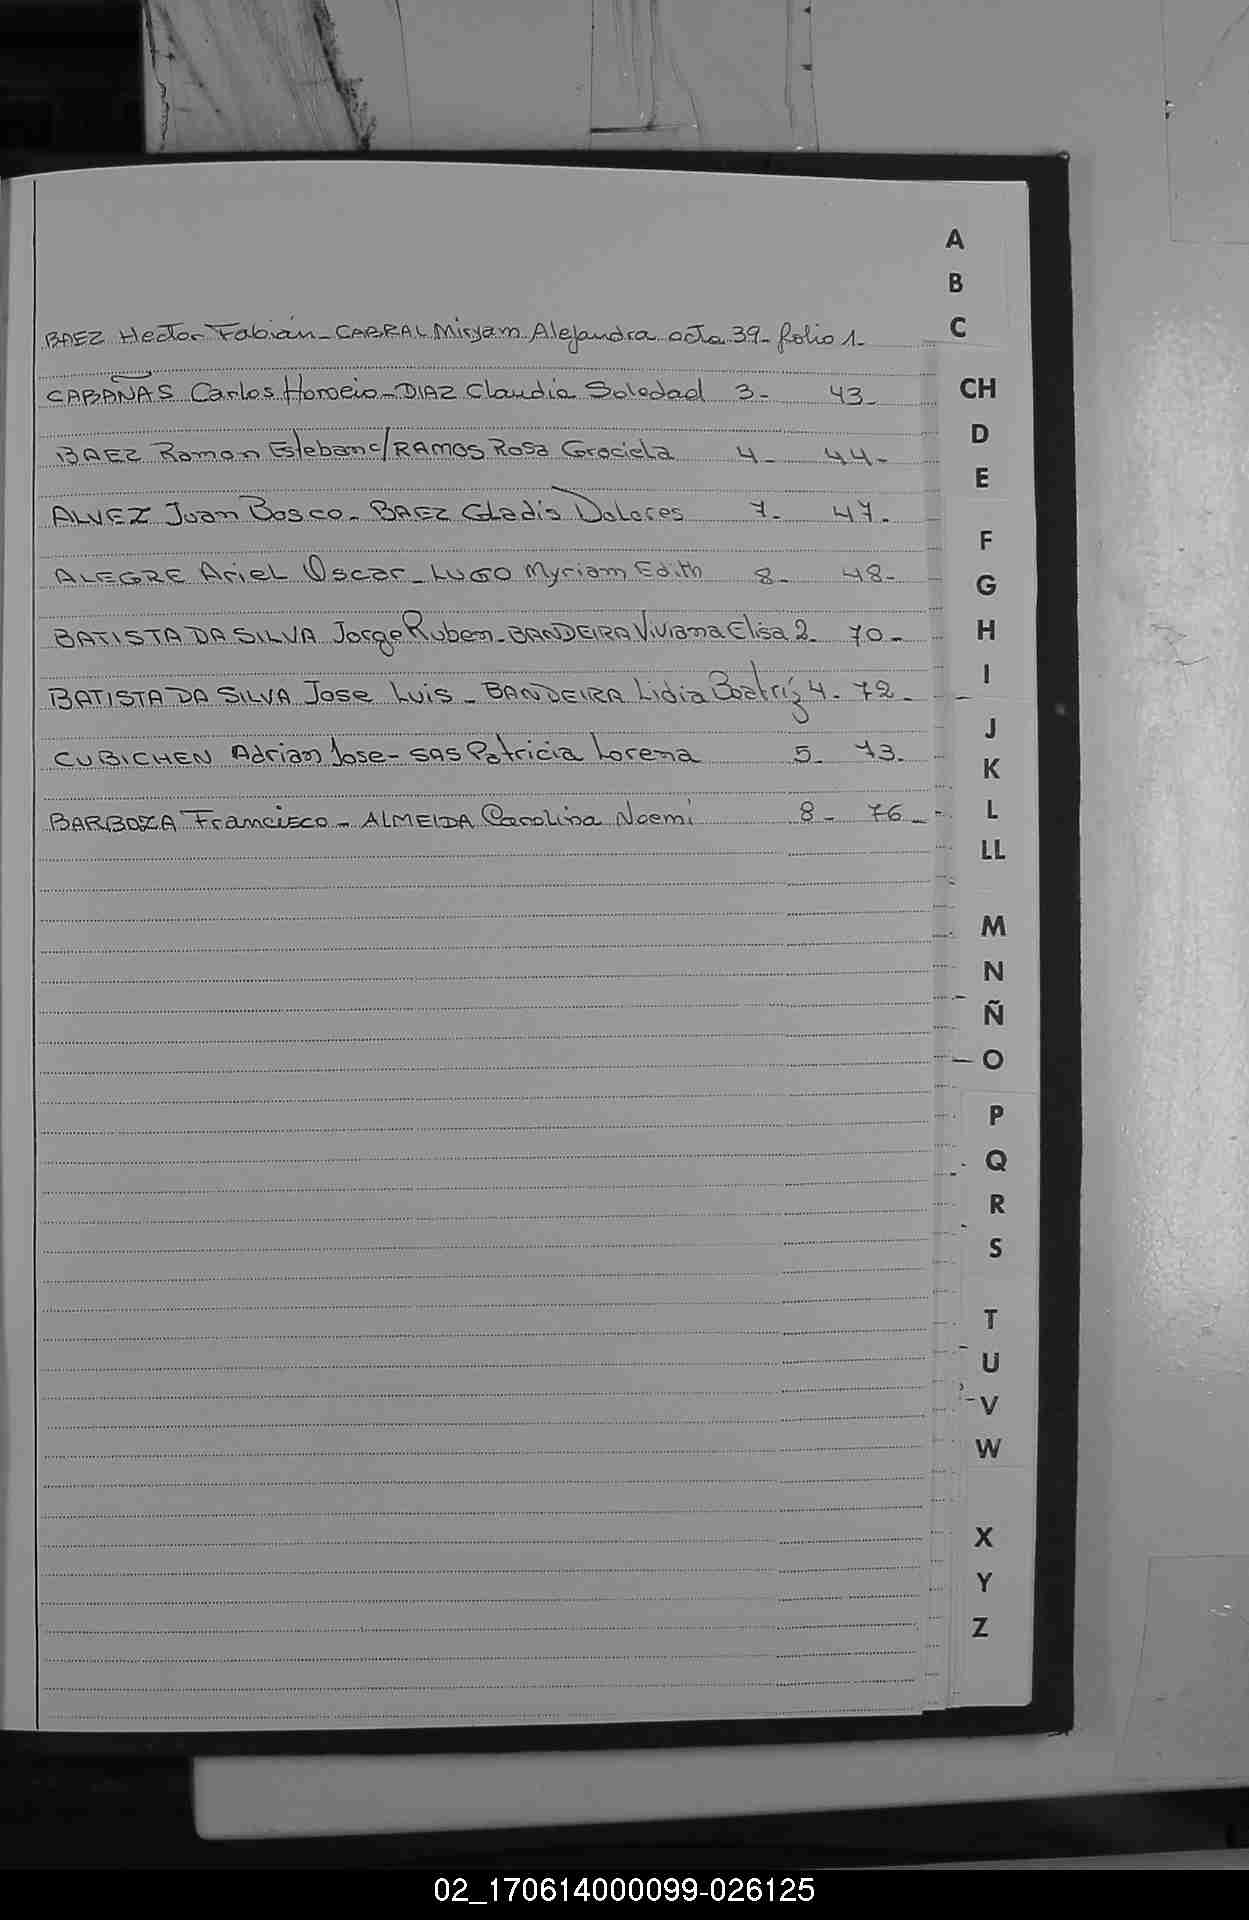 A
B
C
BAEZ Hector Fabián - CABRAL Miryam Alejandra acta 39 - folio 1 -
CABAÑAS Carlos Horacio - DIAZ Claudia Soledad 3 - 43 -
BAEZ Ramon Esteban c/ RAMOS Rosa Graciela 4 - 44 -
ALVEZ Juan Bosco - BAEZ Gladis Dolores 7 - 47 -
ALEGRE Ariel Oscar - LUGO Myriam Edith 8 - 48 -
BATISTA DA SILVA Jorge Ruben - BANDEIRA Viviana Elisa 2 - 70 -
BATISTA DA SILVA Jose Luis - BANDEIRA Lidia Beatríz 4 - 72 -
CUBICHEN Adrian Jose - SAS Patricia Lorena 5 - 73 -
BARBOZA Francisco - ALMEIDA Carolina Noemi 8 - 76 -
CH
D
E
F
G
H
I
J
K
L
LL
M
N
Ñ
O
P
Q
R
S
T
U
V
W
X
Y
Z
02_170614000099-026125